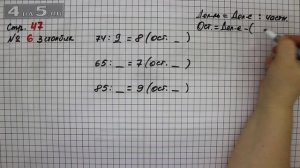 4 5
Стр. 47
№ 6 3 столбик
Дел-ль = Дел-е : частн.
Ост. = Дел-е - (
74 : 9 = 8 (ост. _ )
65 : _ = 7 (ост. _ )
85 : _ = 9 (ост. _ )